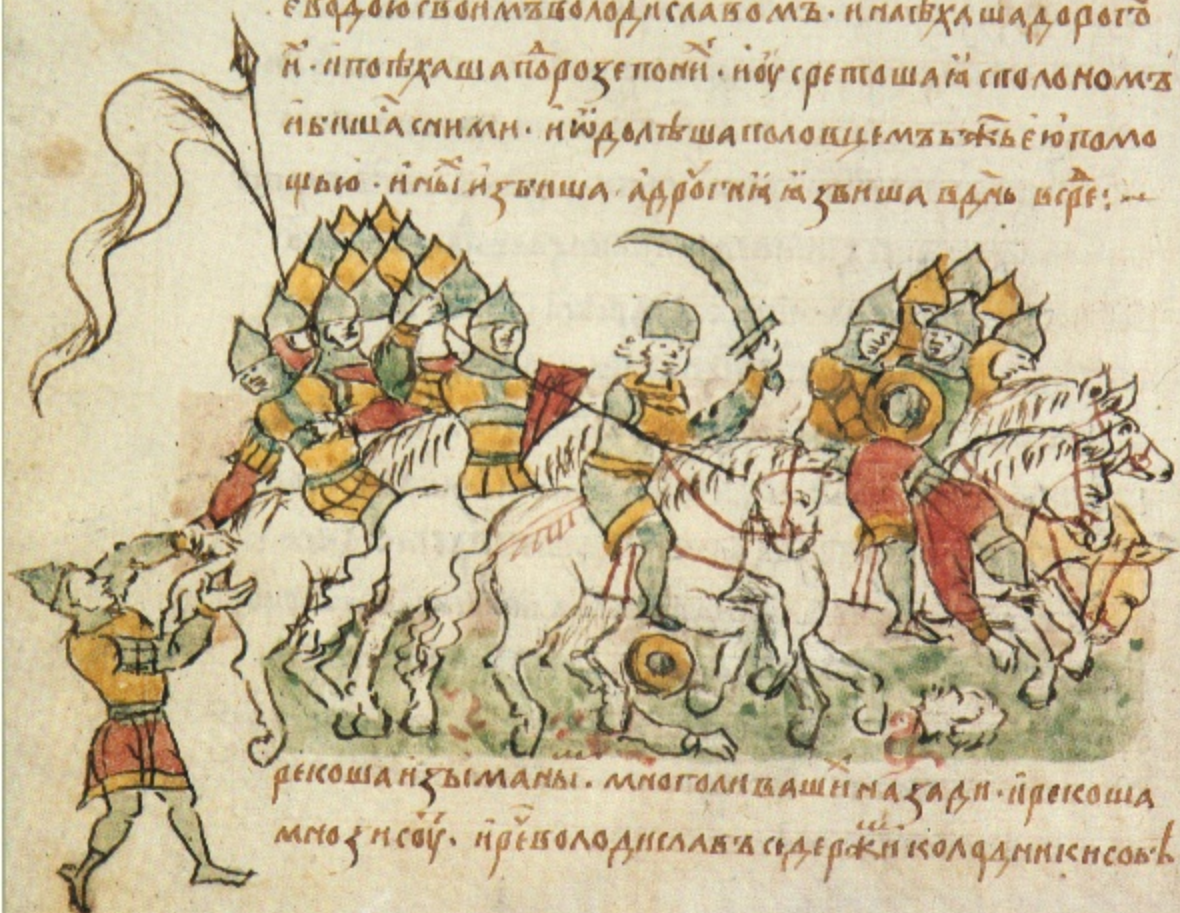 еводою своимъ володиславомъ · и наѣхаша дорогꙋ
иⷯ · и поѣхаша по дорозе по ниⷯ · и ᲂусретоша ꙗ с полономъ
и бишаⷭѧ с ними · и ѿдолѣша половцемъ бж҃ьею помо
щью · и ныⷯ избиша · а дрꙋгиꙗ
рекоша изыманыⷨ · много ли вашиⷯ назади · и рекоша
мнози сᲂуⷮ · и реⷱ володиславъ колодники собѣ